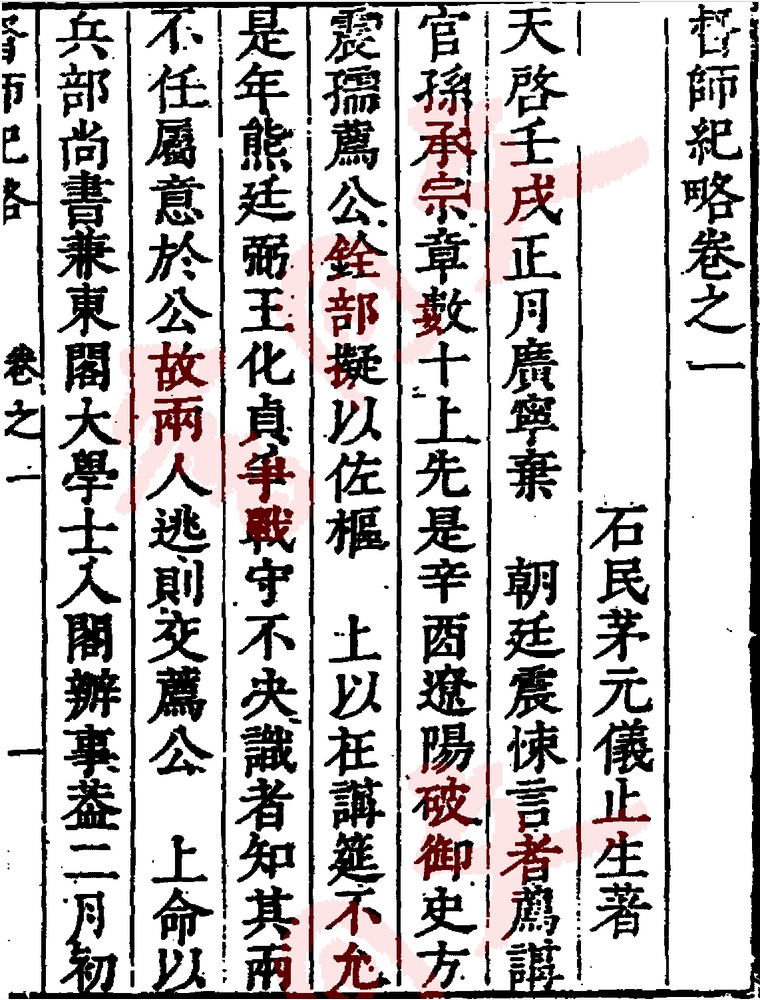 督師紀略卷之一
石民茅元儀止生著
天啓壬戌正月廣寧棄　朝廷震悚言者薦講
官孫承宗章數十上先是辛酉遼陽破御史方
震孺薦公銓部擬以佐樞　上以在講筵不允
是年熊廷弼王化貞爭戰守不決識者知其兩
不任屬意於公故兩人逃則交薦公　上命以
兵部尚書兼東閣大學士入閣辦事葢二月初
督師紀略　卷之一　一